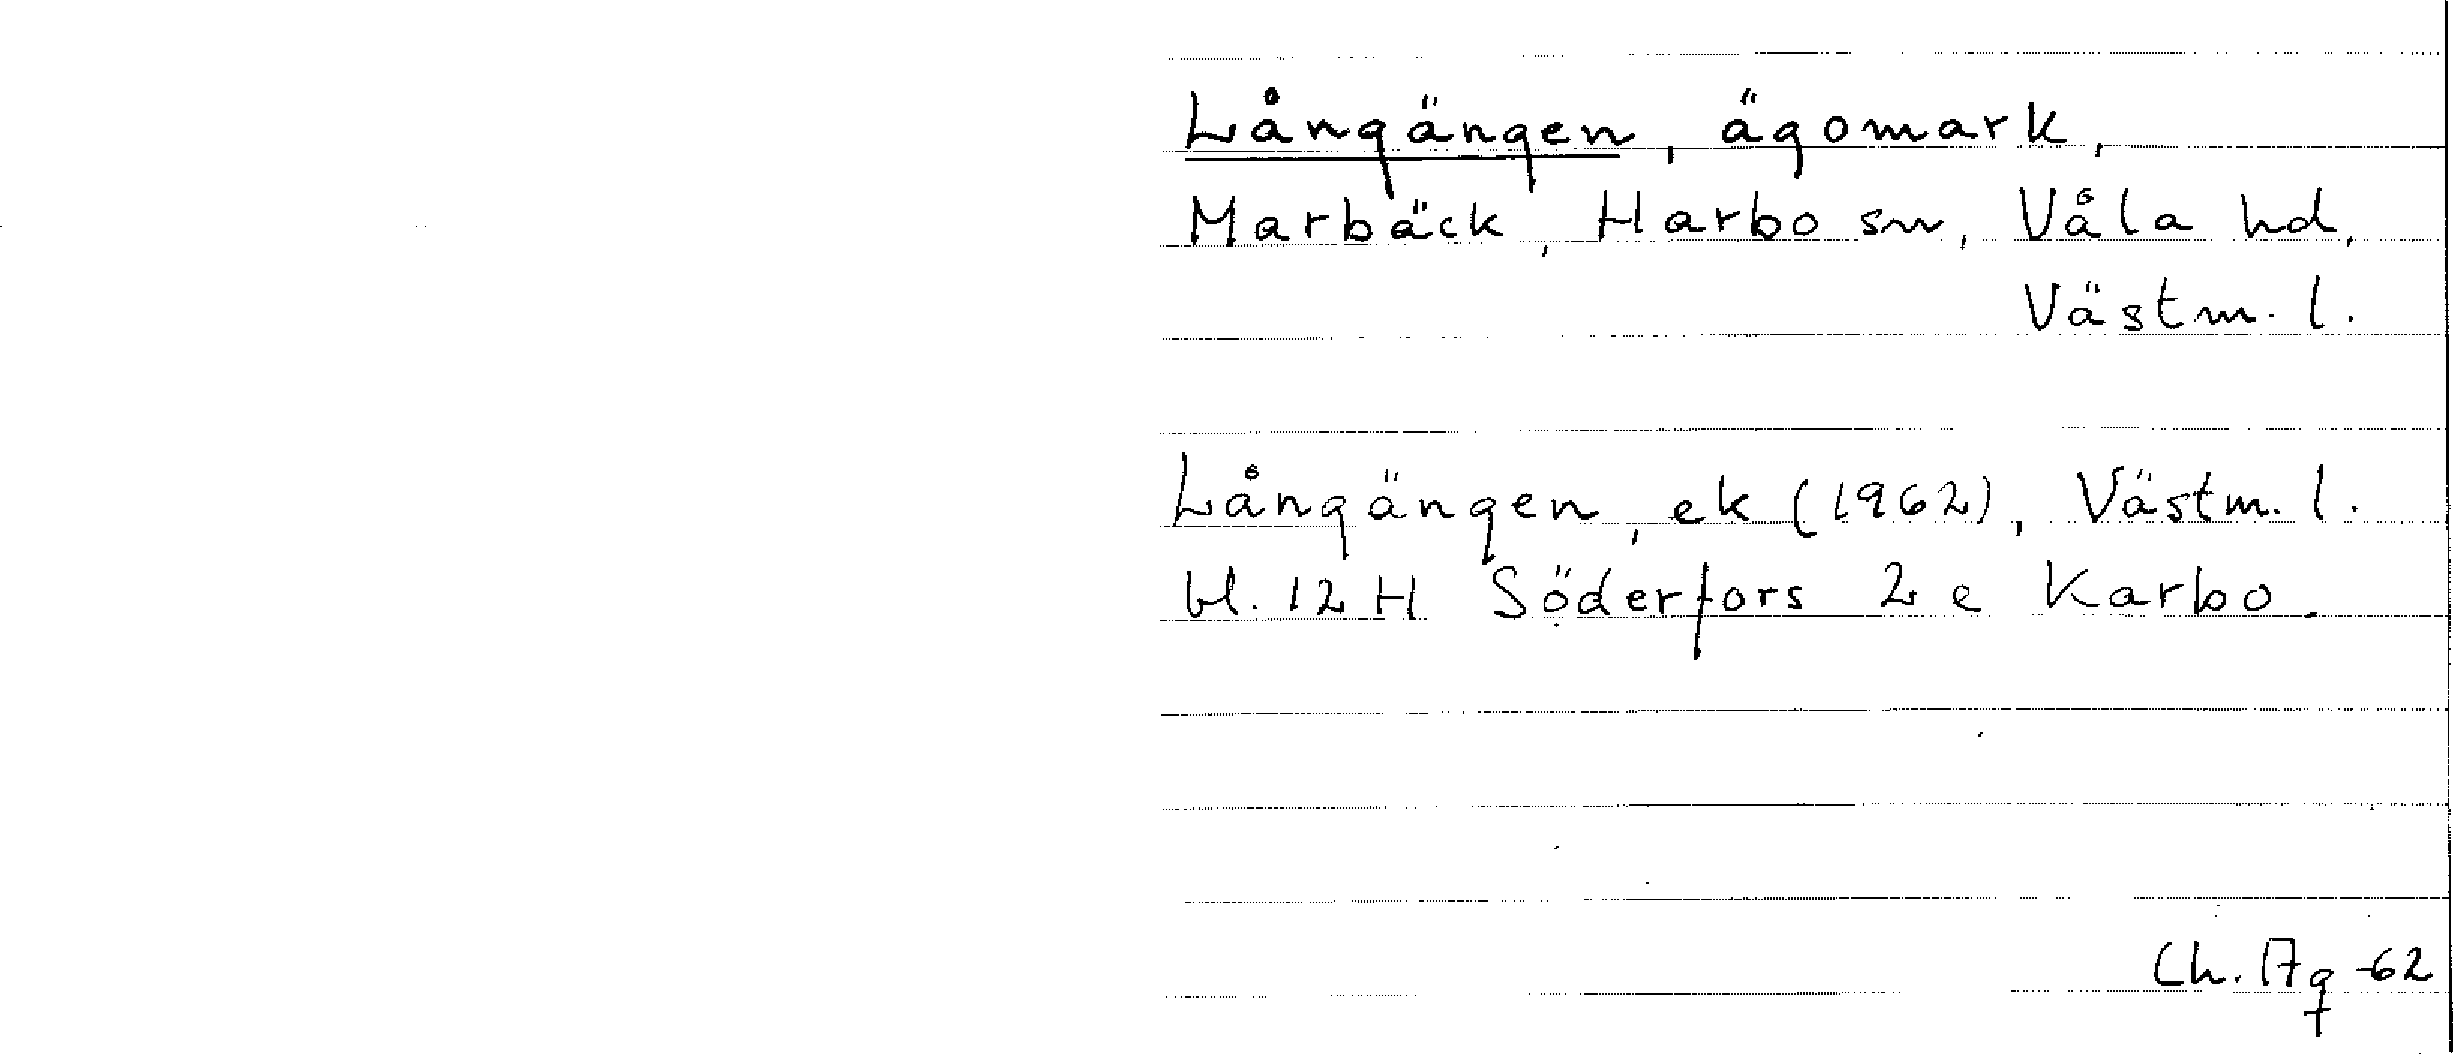 Långängen, ägomark,
Marbäck, Harbo sn, Våla hd,
Västm. l.
Långängen, ek (1962), Västm. l.
bl. 12 H Söderfors 2 e Karbo.
Ch. -62